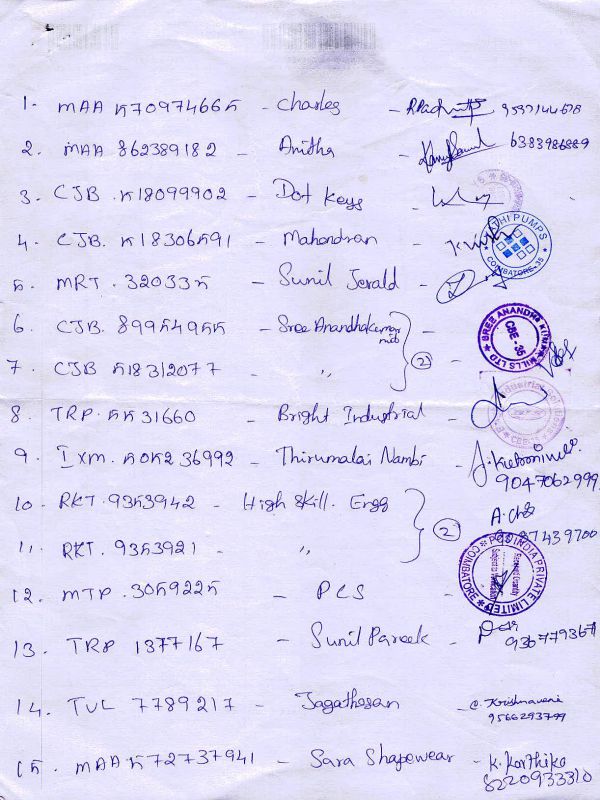 1. MAA 570974665 - Charles
2. MAA 862389182 - Anitha 6383986889
3. CJB. 518099902 - Dot Keys
4. CJB. 518306591 - Mahendran
PUMPS COIMBATORE-35
5. MRT. 320335 - Sunil Jerald
6. CJB. 89954955 - Sree Anandhakumar mill -
SREE ANANDHAKUMAR MILLS LTD CBE - 35
7. CJB 518312077 - ,, (2)
8. TRP. 5531660 - Bright Industrial -
9. IXM. 505236992 - Thirumalai Nambi -
9047062999
10. RKT. 9353942 - High Skill. Engg
11. RKT. 9353921 - ,, (2)
PCS INDIA PRIVATE LIMITED COIMBATORE
12. MTP. 3059225 - PCS
13. TRP 1377167 - Sunil Pareek -
14. TVL 7789217 - Jagathesan - C. Krishnaveni
9566293799
15. MAA 572737941 - Sara Shapewear - K. Karthika
8220933310